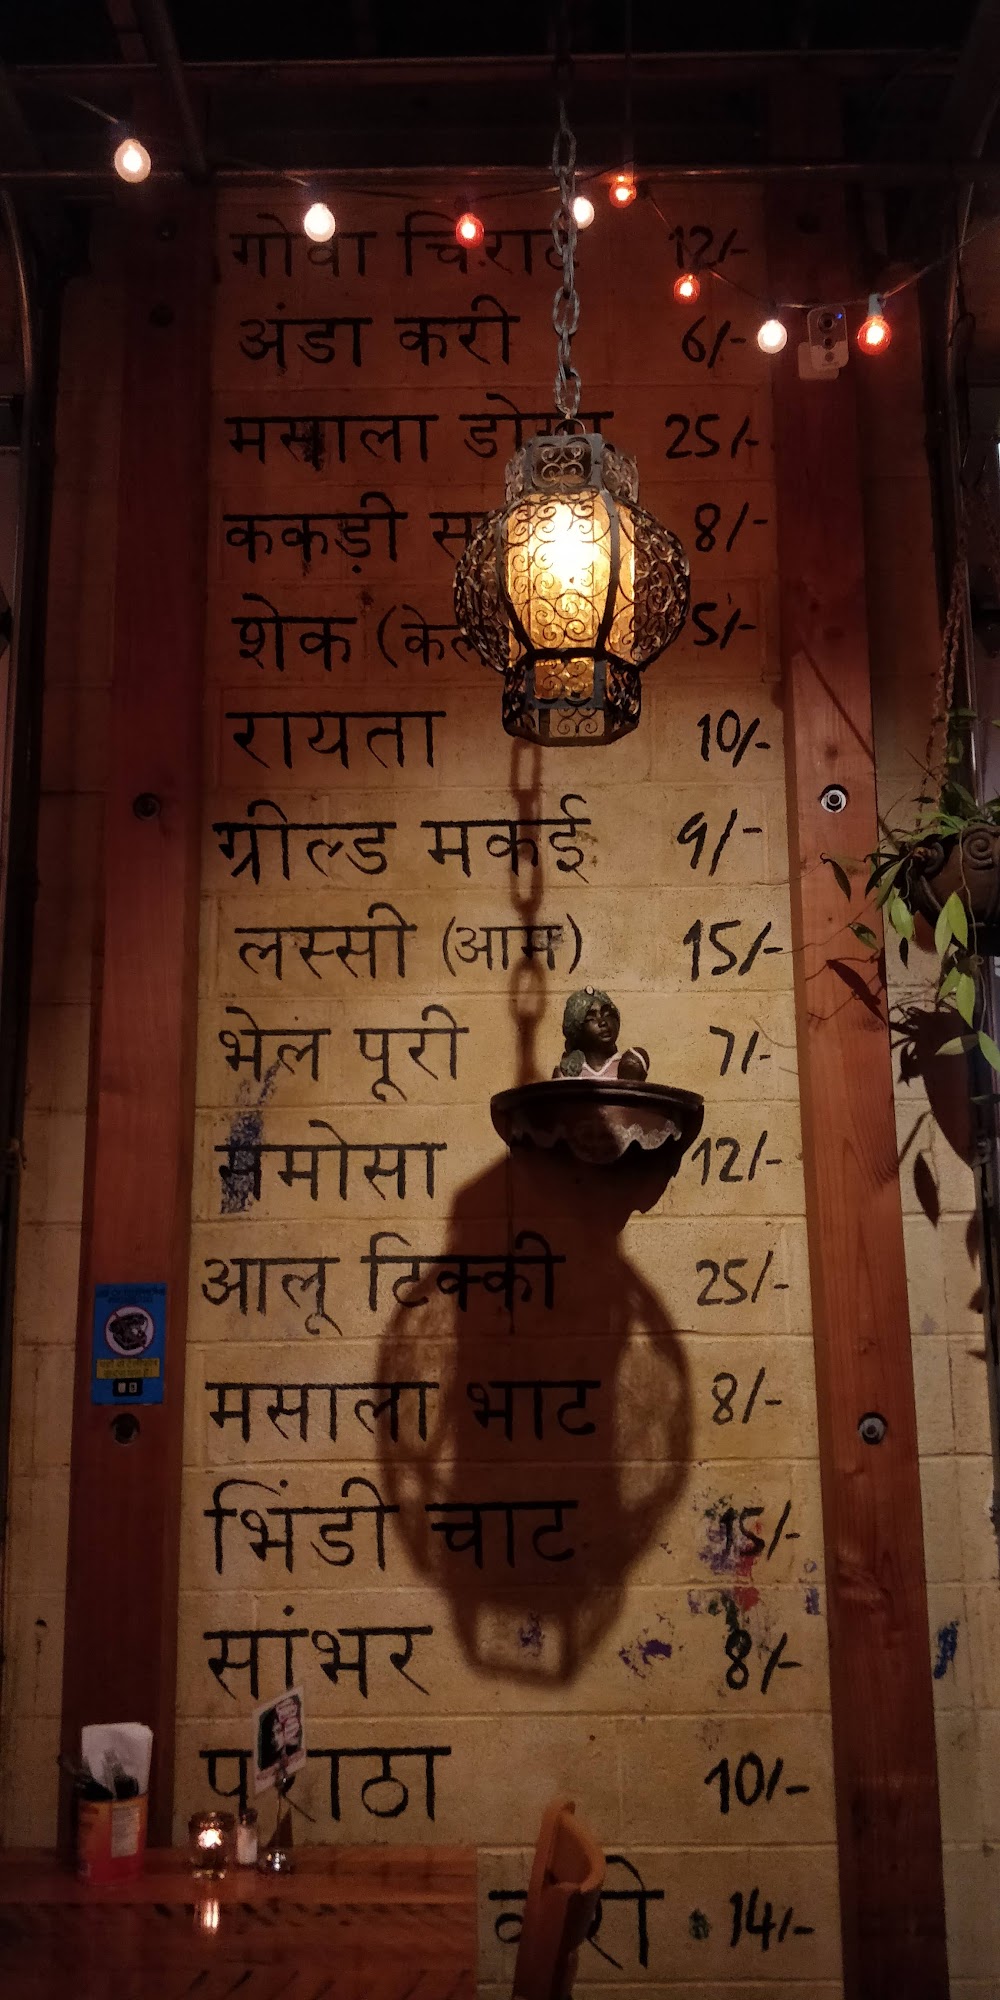 गोवा 12/-
अंडा करी 6/-
मसाला 25/-
ककड़ी 8/-
शेक 5/-
रायता 10/-
ग्रील्ड मकई 9/-
लस्सी (आम) 15/-
भेल पूरी 7/-
समोसा 12/-
आलू टिक्की 25/-
मसाला भाट 8/-
भिंडी चाट 15/-
सांभर 8/-
पराठा 10/-
14/-